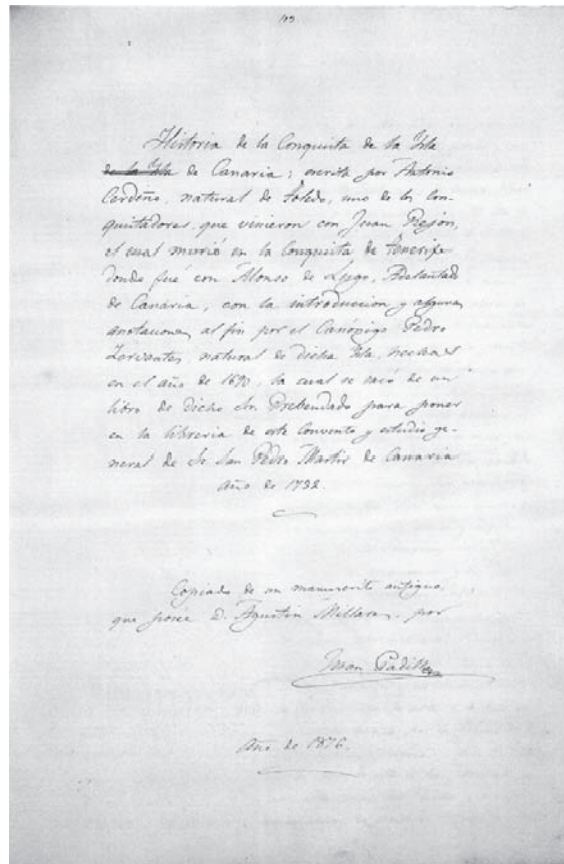 Historia de la Conquista de la Isla
de la Isla de Canaria; escrita por Antonio
Cerdeño, natural de Toledo, uno de los con-
quistadores que vinieron con Juan Rejón,
el cual murió en la Conquista de Tenerife
donde fué con Alonso de Lugo, Adelantado
de Canaria, con la introduccion y algunas
anotaciones al fin por el Canónigo Pedro
Zervantes, natural de dicha Isla, hecha
en el año de 1690, la cual se sacó de un
libro de dicho Sr. Prebendado para poner
en la libreria de este Convento y estudio ge-
neral de Sr. San Pedro Martir de Canaria
Año de 1732.
Copiado de un manuscrito antiguo,
que posée D. Agustin Millares, por
Juan Padilla
Año de 1876.